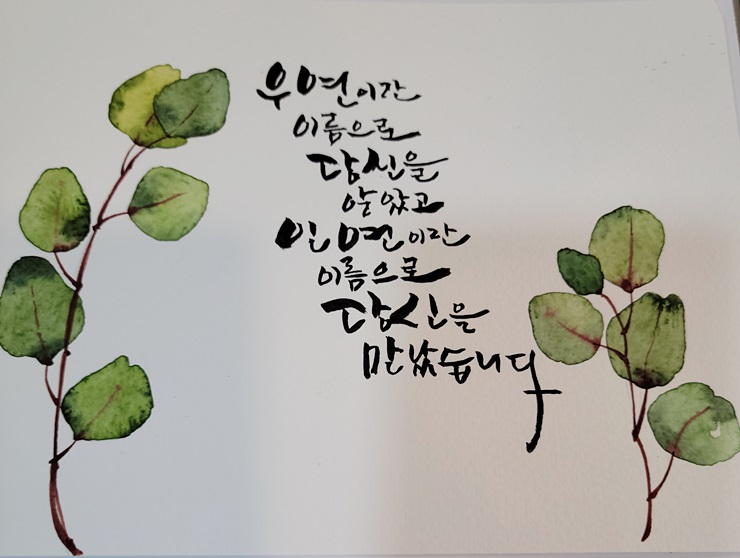 우연이란
이름으로
당신을
알았고
인연이란
이름으로
당신을
만났습니다